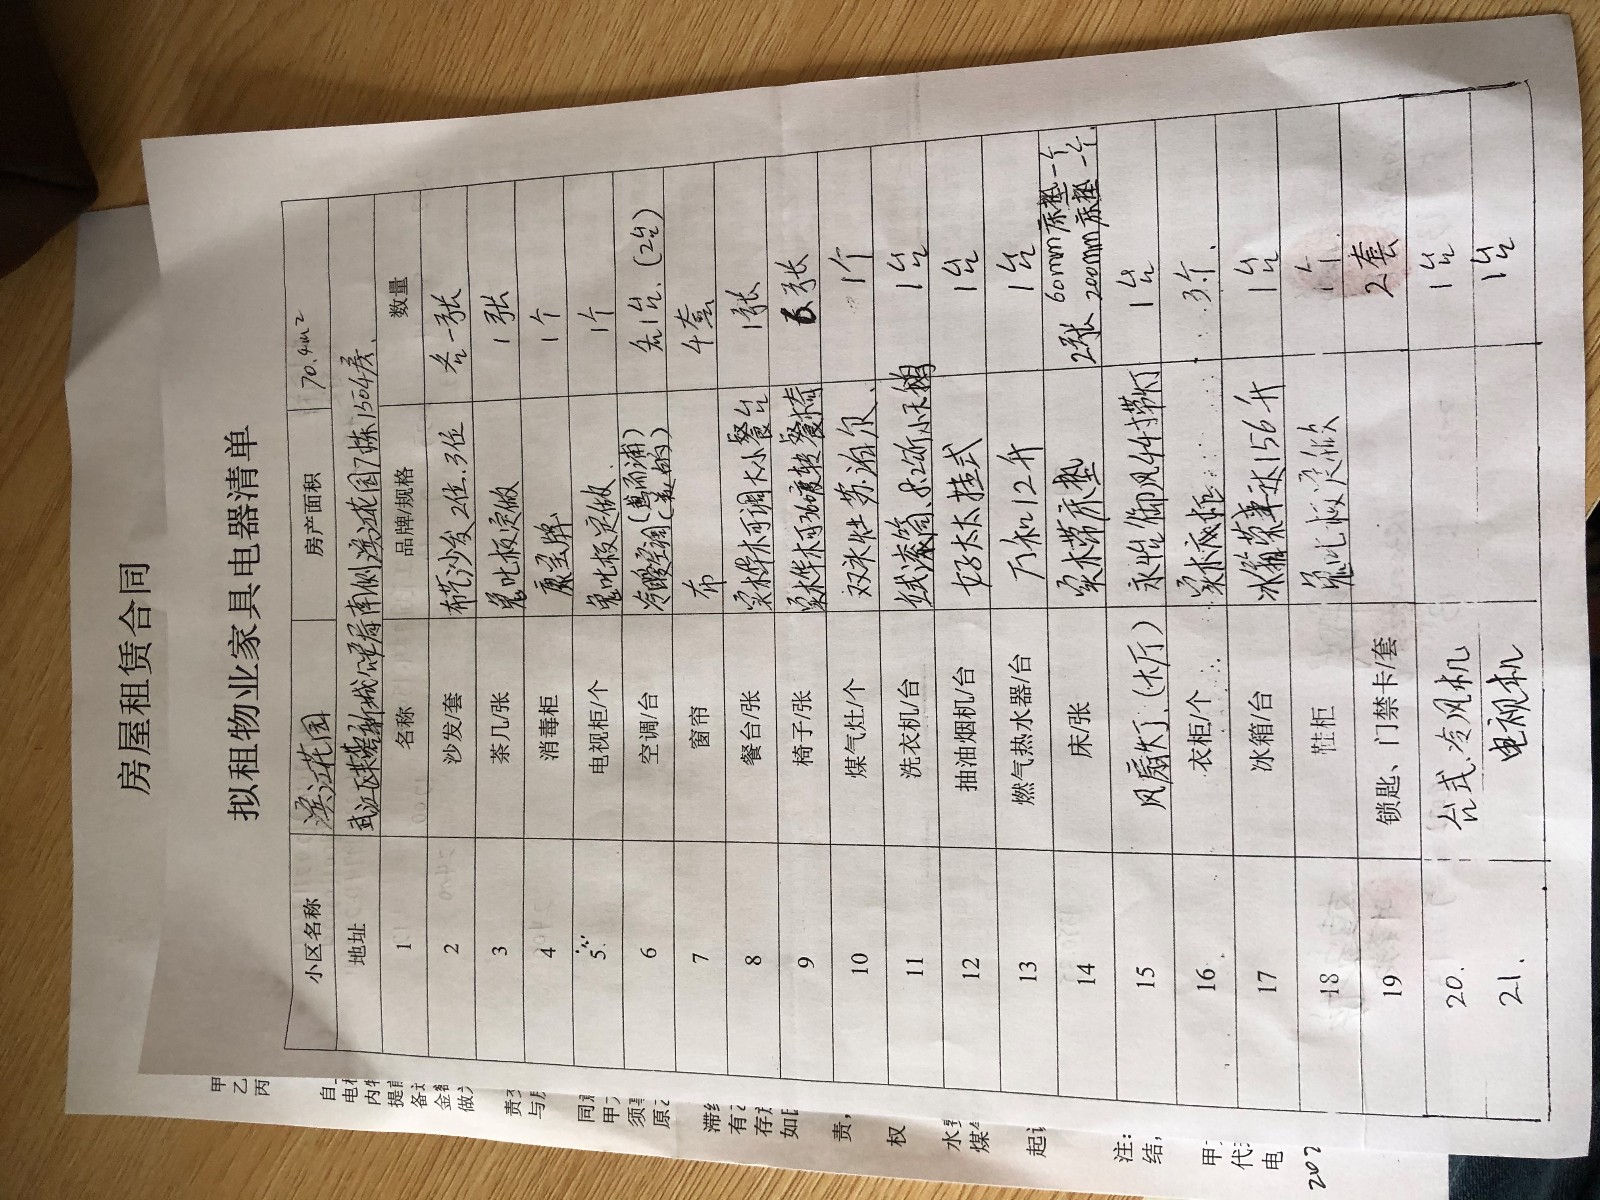 房屋租赁合同
拟租物业家具电器清单
小区名称 滨江花园 房产面积 70.4m2
地址 武江区 南侧滨江花园7栋1504房、
1 名称 品牌/规格 数量
2 沙发/套 布艺沙发2位.3位 各一张
3 茶几/张 板定做 1张
4 消毒柜 康宝牌 1个
5. 电视柜/个 板定做. 1个
6 空调/台 冷暖空调 各1台.(2台)
7 窗帘 布 4套
8 餐台/张 实木 可调大小餐台 1张
9 椅子/张 实木 餐椅 6张
10 煤气灶/个 双 灶 苏泊尔、 1个
11 洗衣机/台 滚筒、8.2 小天鹅 1台
12 抽油烟机/台 好太太 挂式 1台
13 燃气热水器/台 万和12升 1台
14 床/张 实木带床垫 2张 60mm床垫一个 200mm床垫一个.
15 风扇灯、(木厅) 永 御风 带灯 1台
16 衣柜/个 实木衣柜 3个、
17 冰箱/台 冰箱 156升 1台
18 鞋柜 板定做 1个.
19 锁匙、门禁卡/套 2套
20. 台式.冷风机 1台
21. 电视机 1台
甲
乙
丙
自
电
内
提
备
金
做
责
与
同
甲
须
原
滞
有
存
如
责,
权
水
煤
起
注:
结,
甲
代
电
202